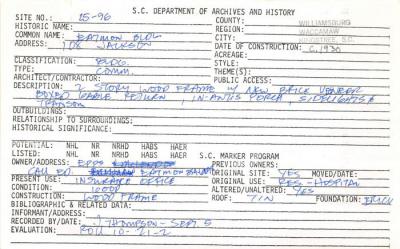 S.C. DEPARTMENT OF ARCHIVES AND HISTORY
SITE NO.: 05-96
COUNTY: WILLIAMSBURG
HISTORIC NAME:
REGION: WACCAMAW
COMMON NAME: EATMON BLDG
CITY: KINGSTREE, SC
ADDRESS: 108 JACKSON
DATE OF CONSTRUCTION: C. 1930
ACREAGE:
CLASSIFICATION: BLDG.
STYLE:
TYPE: COMM.
THEME(S):
ARCHITECT/CONTRACTOR:
PUBLIC ACCESS:
DESCRIPTION: 2 STORY WOOD FRAME W/ NEW BRICK VENEER
BOXED GABLE RETURN, IN-ANTIS PORCH, SIDELIGHTS &
TRANSOM
OUTBUILDINGS:
RELATIONSHIP TO SURROUNDINGS:
HISTORICAL SIGNIFICANCE:
POTENTIAL: NHL NR NRHD HABS HAER
LISTED: NHL NR NRHD HABS HAER S.C. MARKER PROGRAM
OWNER/ADDRESS: EPPS
PREVIOUS OWNERS:
EATMON
ORIGINAL SITE: YES MOVED/DATE:
PRESENT USE: INSURANCE OFFICE
ORIGINAL USE: RES-HOSPITAL
CONDITION: GOOD
ALTERED/UNALTERED: YES
CONSTRUCTION: WOOD FRAME
ROOF: TIN FOUNDATION: BRICK
BIBLIOGRAPHIC & RELATED DATA:
INFORMANT/ADDRESS:
RECORDED BY/DATE: J THOMPSON - SEPT 5
EVALUATION: ROLL 10-21-2